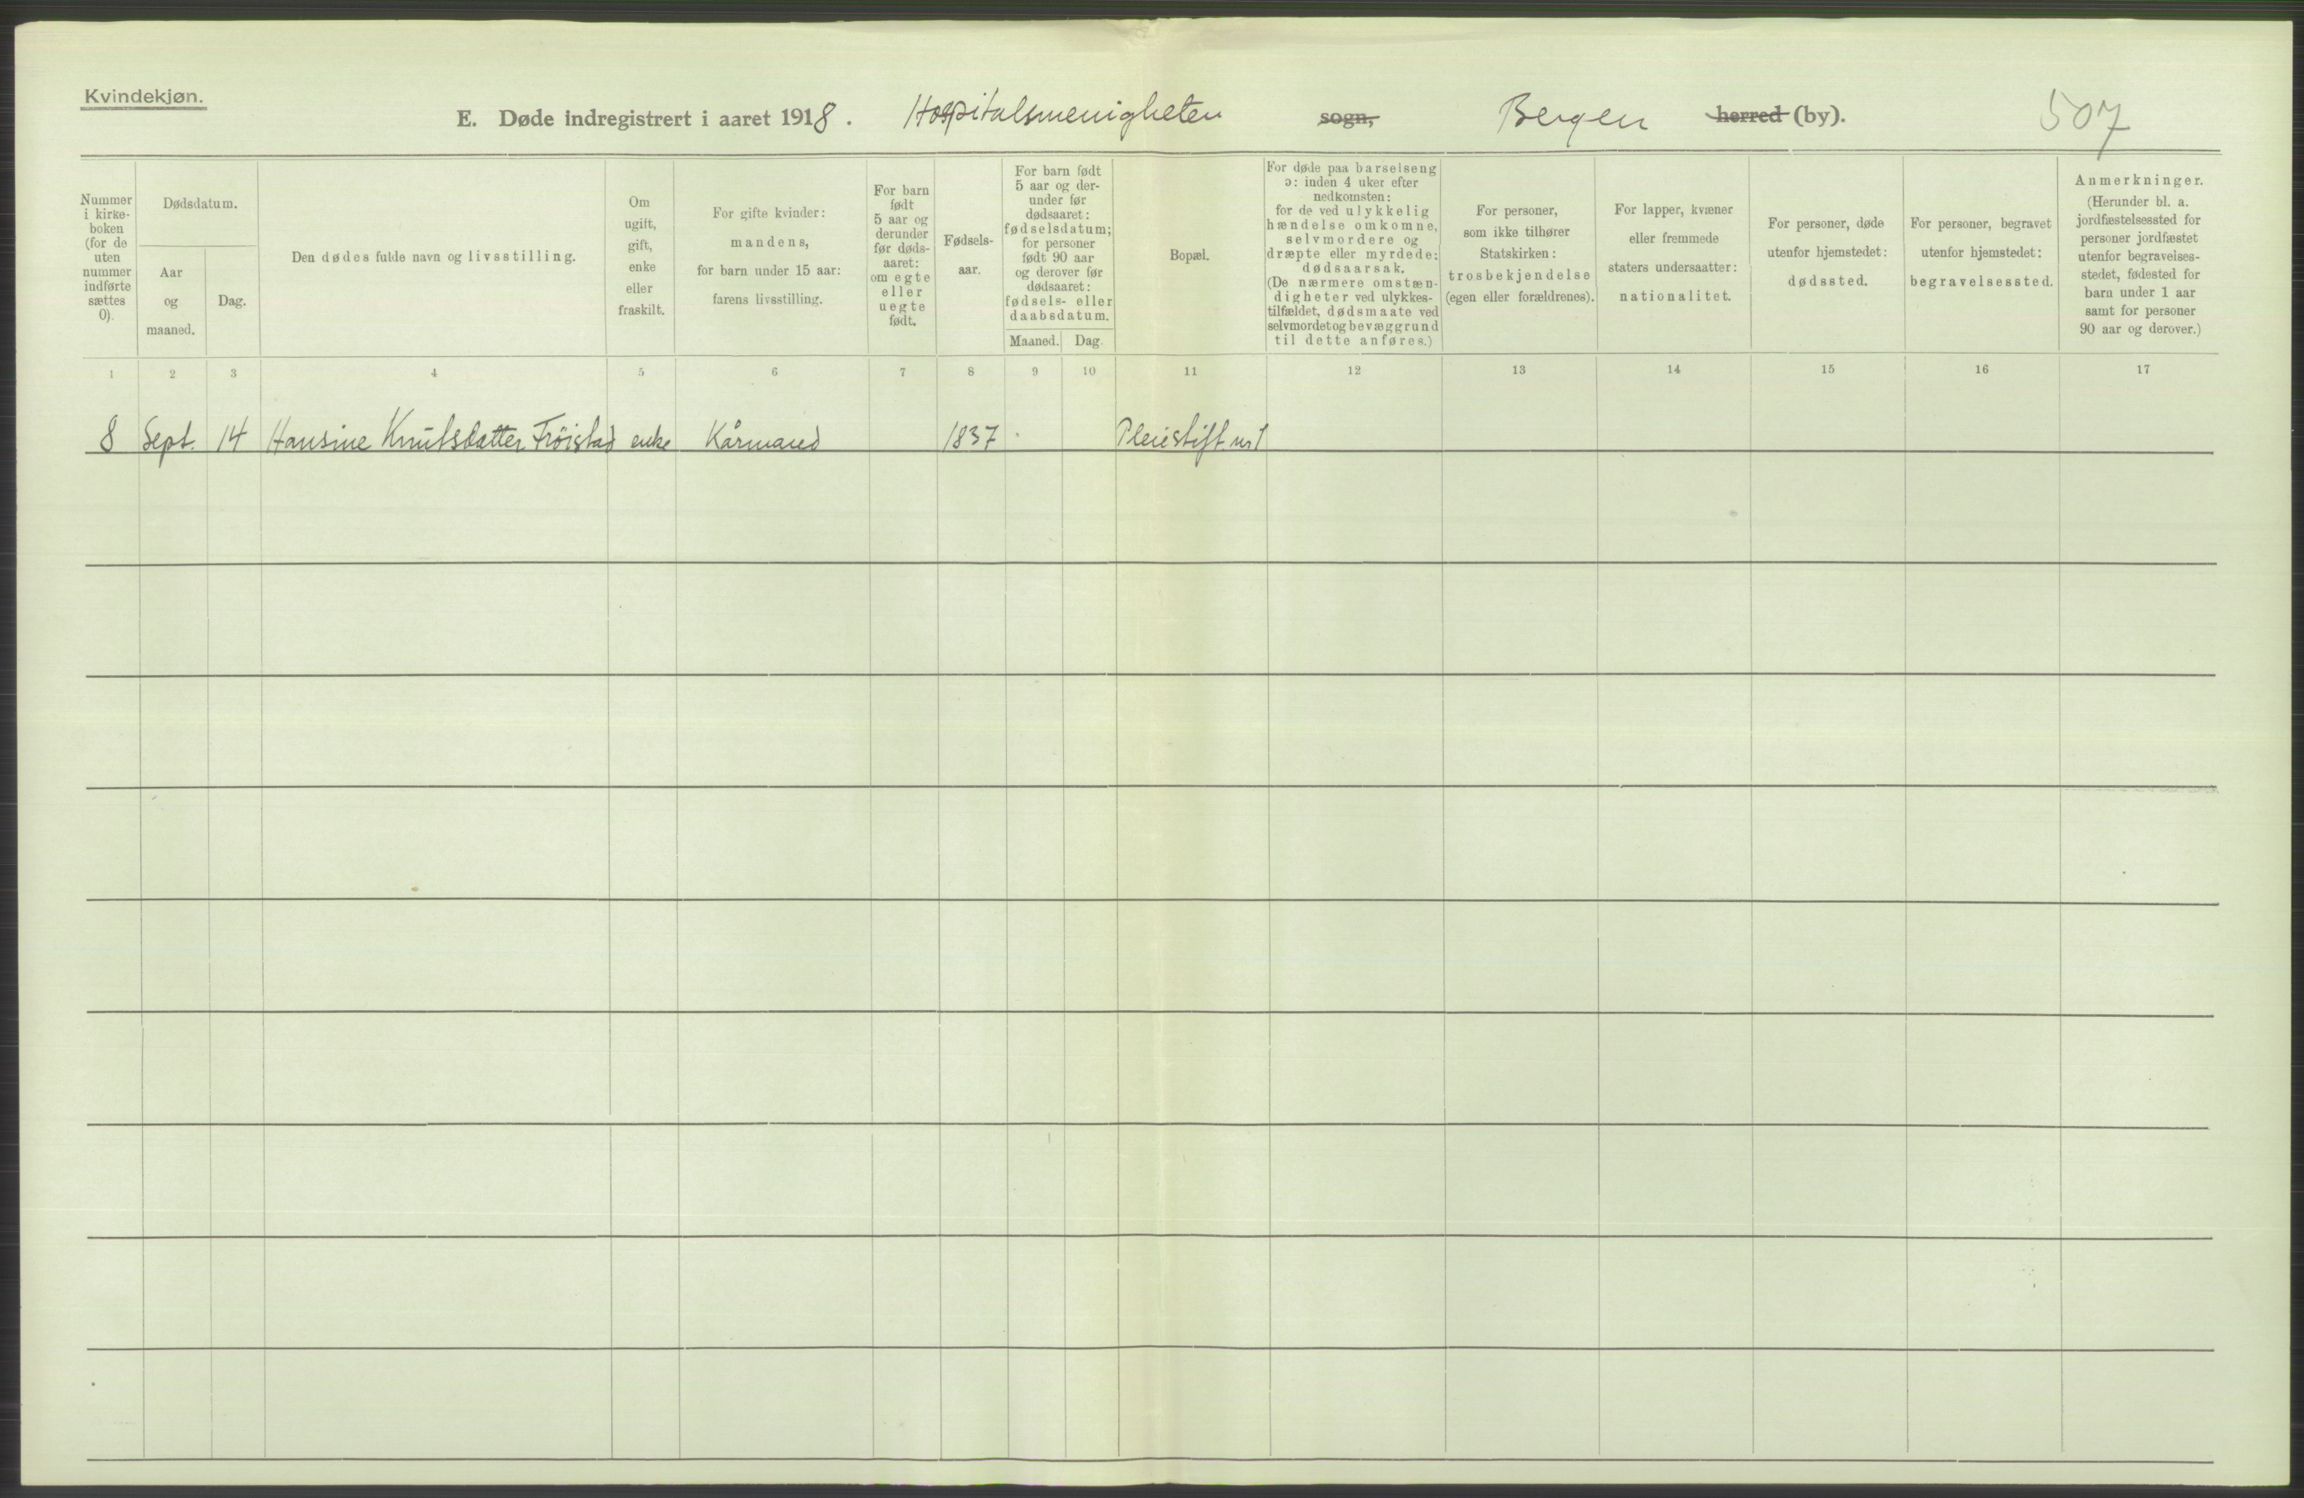 Kvindekjøn.
E. Døde indregistrert i aaret 1918. Hospitalsmenigheten sogn, Bergen herred (by). 507
Nummer
i kirke-
boken
(for de
uten
nummer
indførte
sættes
0).
Dødsdatum.
Aar
og
maaned.
Dag.
Den dødes fulde navn og livsstilling.
Om
ugift,
gift,
enke
eller
fraskilt.
For gifte kvinder:
mandens,
for barn under 15 aar:
farens livsstilling.
For barn
født
5 aar og
derunder
før døds-
aaret:
om egte
eller
uegte
født.
Fødsels-
aar.
For barn født
5 aar og der-
under før
dødsaaret:
fødselsdatum;
for personer
født 90 aar
og derover før
dødsaaret:
fødsels- eller
daabsdatum.
Maaned. Dag.
Bopæl.
For døde paa barselseng
ɔ: inden 4 uker efter
nedkomsten:
for de ved ulykkelig
hændelse omkomne,
selvmordere og
dræpte eller myrdede:
dødsaarsak.
(De nærmere omstæn-
digheter ved ulykkes-
tilfældet, dødsmaate ved
selvmordet og bevæggrund
til dette anføres.)
For personer,
som ikke tilhører
Statskirken:
trosbekjendelse
(egen eller forældrenes).
For lapper, kvæner
eller fremmede
staters undersaatter:
nationalitet.
For personer, døde
utenfor hjemstedet:
dødssted.
For personer, begravet
utenfor hjemstedet:
begravelsessted.
Anmerkninger.
(Herunder bl. a.
jordfæstelsessted for
personer jordfæstet
utenfor begravelses-
stedet, fødested for
barn under 1 aar
samt for personer
90 aar og derover.)
1 2 3 4 5 6 7 8 9 10 11 12 13 14 15 16 17
8 Sept. 14 Hansine Knutsdatter Fröistad enke Kårmand 1837 Pleiestift. nr 1